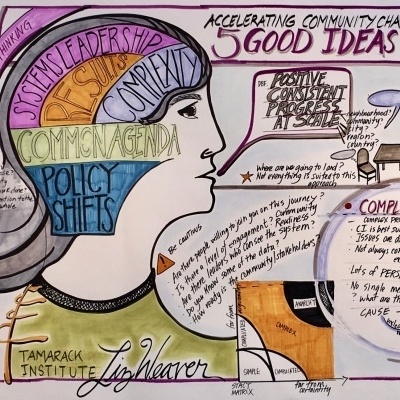 ACCELERATING COMMUNITY CHA
5 GOOD IDEAS
THINKING
SYSTEMS LEADERSHIP
RESULTS
COMPLEXITY
COMMON AGENDA
POLICY
SHIFTS
DEF.
POSITIVE
CONSISTENT
PROGRESS
AT SCALE
neighbourhood?
community?
city?
region?
country?
Where are we going to land?
Not everything is suited to this
approach
BE CAUTIOUS
Are there people willing to join you on this journey?
Is there a level of engagement? Community
Readiness
Are there leaders who can see the system?
Do you know some of the data?
How ready is the community/stakeholders?
COMPL
COMPLEX PRO
CI is best su
ISSUES are d
Not always co
Lots of PERS
No single me
? what are th
CAUSE
far from
COMPLICATED
ANARCHY
COMPLEX
SIMPLE
COMPLICATED
STACY
MATRIX
far from
certainty
TAMARACK
INSTITUTE
Liz Weaver